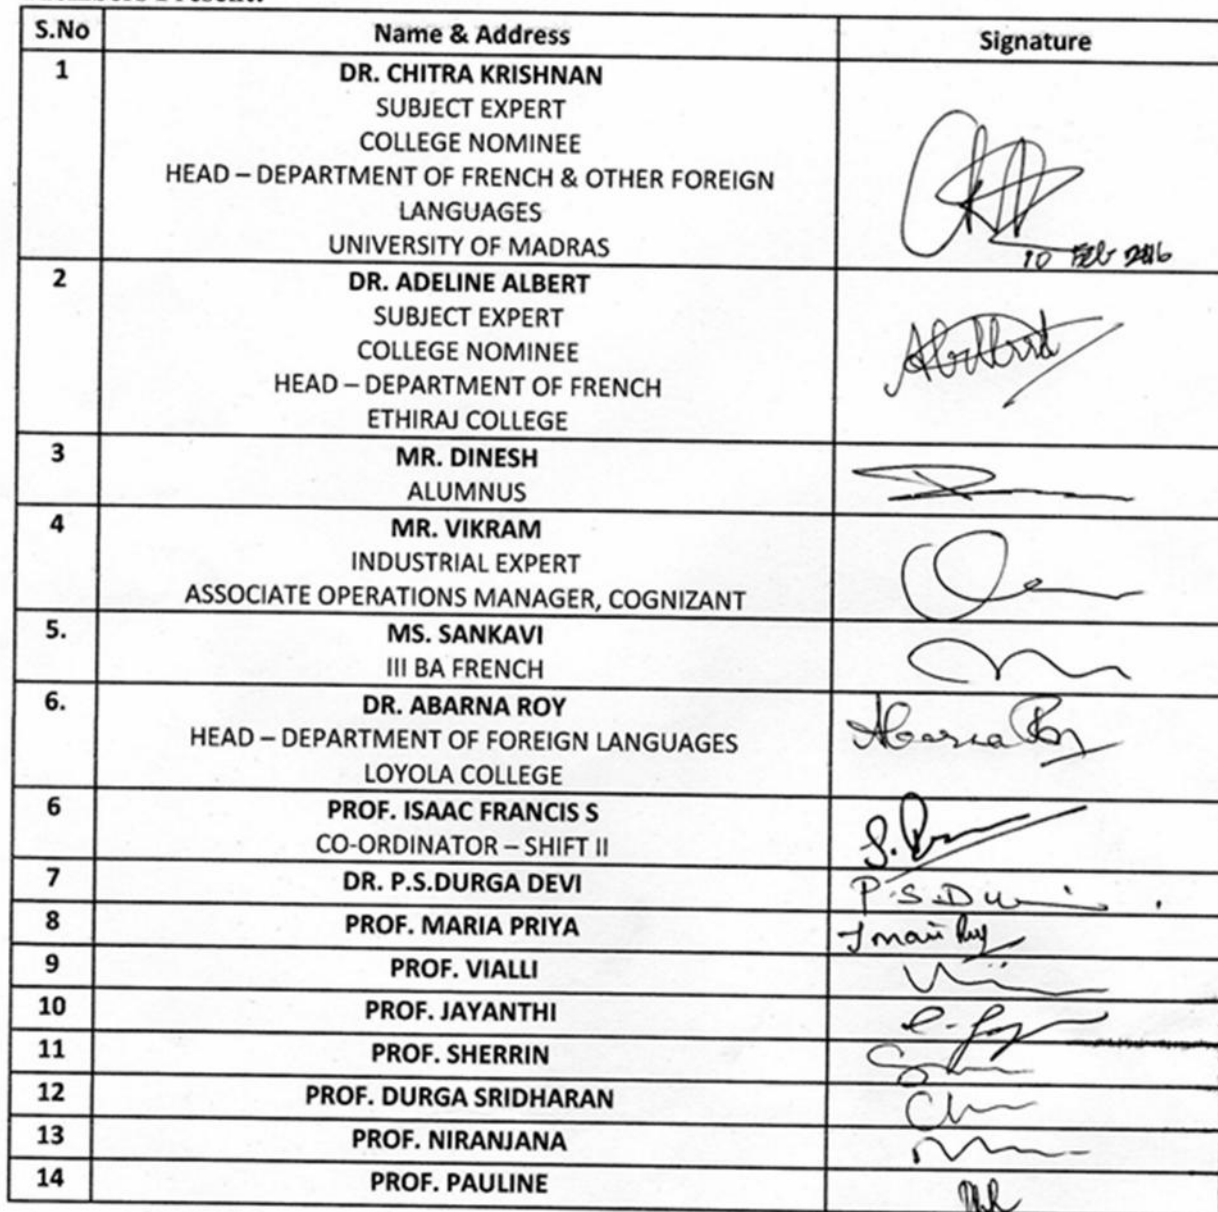 S.No Name & Address Signature
1 DR. CHITRA KRISHNAN
SUBJECT EXPERT
COLLEGE NOMINEE
HEAD – DEPARTMENT OF FRENCH & OTHER FOREIGN
LANGUAGES
UNIVERSITY OF MADRAS
10 Feb 2016
2 DR. ADELINE ALBERT
SUBJECT EXPERT
COLLEGE NOMINEE
HEAD – DEPARTMENT OF FRENCH
ETHIRAJ COLLEGE
3 MR. DINESH
ALUMNUS
4 MR. VIKRAM
INDUSTRIAL EXPERT
ASSOCIATE OPERATIONS MANAGER, COGNIZANT
5. MS. SANKAVI
III BA FRENCH
6. DR. ABARNA ROY
HEAD – DEPARTMENT OF FOREIGN LANGUAGES
LOYOLA COLLEGE
6 PROF. ISAAC FRANCIS S
CO-ORDINATOR – SHIFT II
7 DR. P.S.DURGA DEVI
8 PROF. MARIA PRIYA
9 PROF. VIALLI
10 PROF. JAYANTHI
11 PROF. SHERRIN
12 PROF. DURGA SRIDHARAN
13 PROF. NIRANJANA
14 PROF. PAULINE